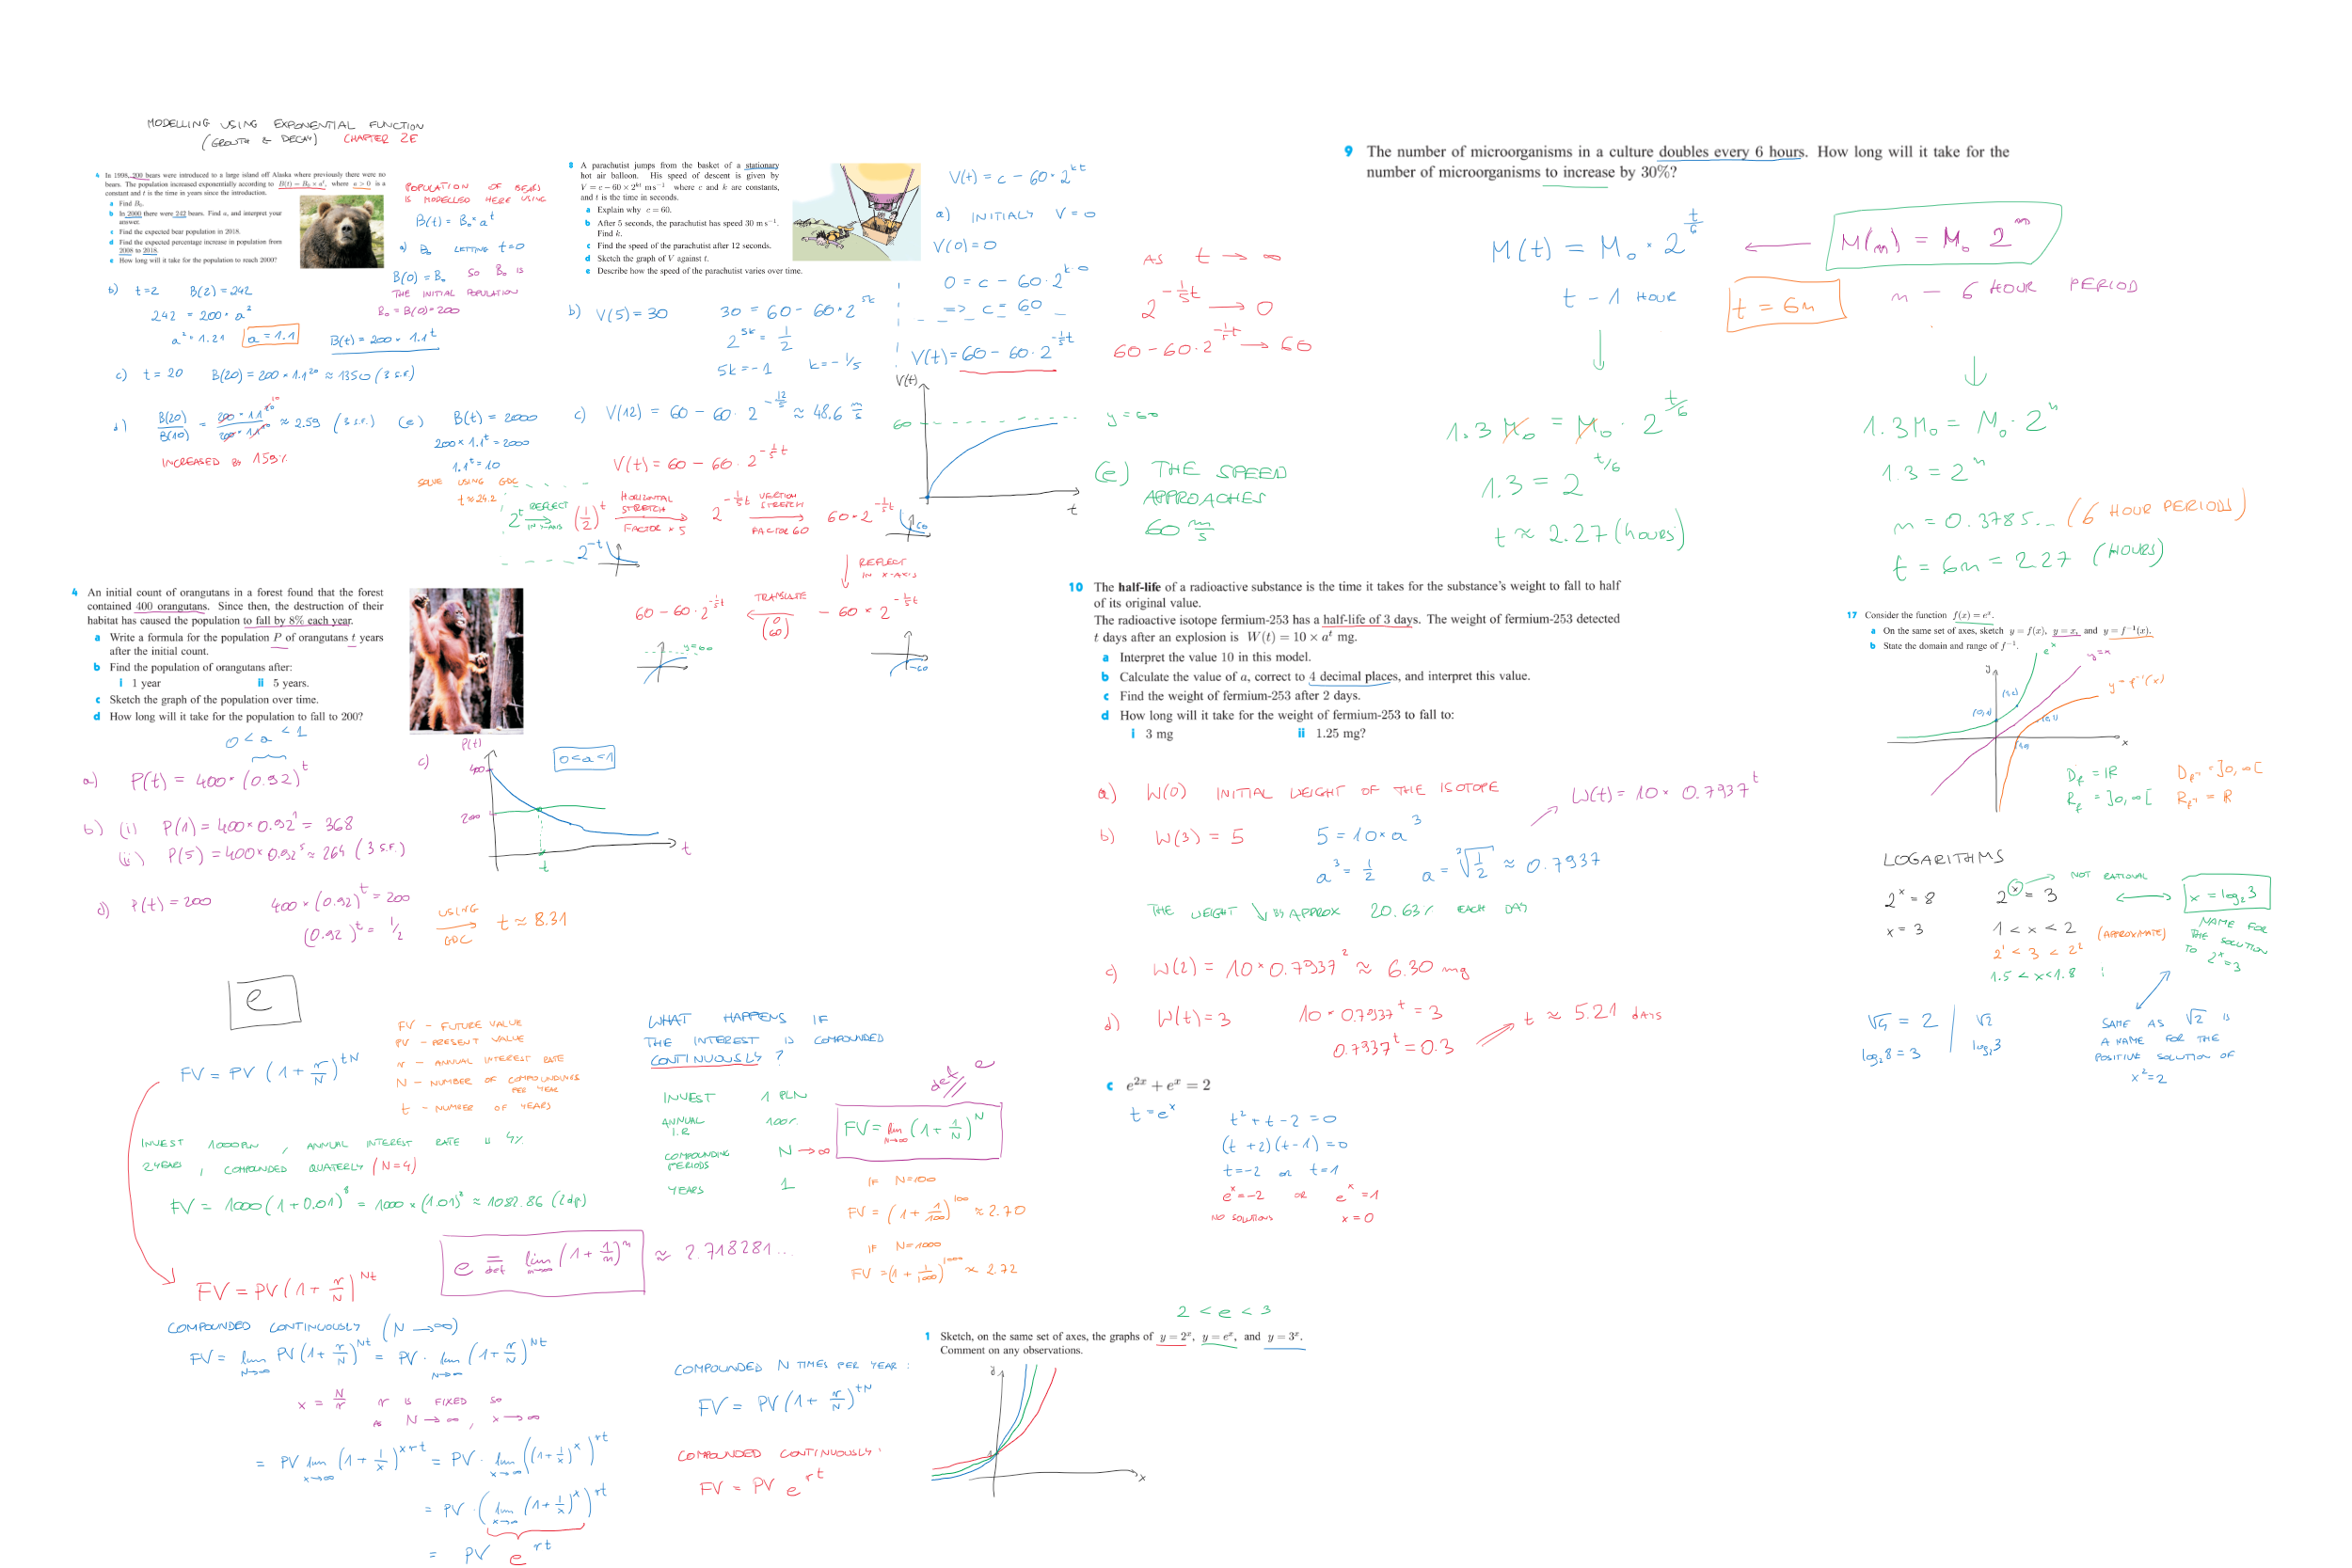 MODELLING USING EXPONENTIAL FUNCTION
(GROWTH & DECAY) CHAPTER 2E
6 In 1998, 200 bears were introduced to a large island off Alaska where previously there were no
bears. The population increased exponentially according to B(t) = B₀ × aᵗ, where a > 0 is a
constant and t is the time in years since the introduction.
a Find B₀.
b In 2000 there were 242 bears. Find a, and interpret your
answer.
c Find the expected bear population in 2018.
d Find the expected percentage increase in population from
2008 to 2018.
e How long will it take for the population to reach 2000?
POPULATION OF BEARS
IS MODELLED HERE USING
B(t) = B₀ × aᵗ
a) B₀ LETTING t=0
B(0) = B₀ SO B₀ IS
THE INITIAL POPULATION
B₀ = B(0) = 200
b) t=2 B(2)=242
242 = 200 · a²
a² = 1.21 a = 1.1 B(t) = 200 × 1.1ᵗ
c) t = 20 B(20) = 200 × 1.1²⁰ ≈ 1350 (3 s.f.)
d) B(20)/B(10) = 200 · 1.1²⁰/200 · 1.1¹⁰ ≈ 2.59 (3 s.f.)
INCREASED BY 159%
(e) B(t) = 2000
200 × 1.1ᵗ = 2000
1.1ᵗ = 10
SOLVE USING GDC
t ≈ 24.2
8 A parachutist jumps from the basket of a stationary
hot air balloon. His speed of descent is given by
V = c − 60 × 2ᵏᵗ m s⁻¹ where c and k are constants,
and t is the time in seconds.
a Explain why c = 60.
b After 5 seconds, the parachutist has speed 30 m s⁻¹.
Find k.
c Find the speed of the parachutist after 12 seconds.
d Sketch the graph of V against t.
e Describe how the speed of the parachutist varies over time.
V(t) = c − 60 · 2^(kt)
a) INITIALY V = 0
V(0) = 0
0 = c − 60 · 2^(k·0)
=> c = 60
V(t) = 60 − 60 · 2^(-1/5 t)
b) V(5) = 30 30 = 60 − 60 · 2^(5k)
2^(5k) = 1/2
5k = −1 k = −1/5
c) V(12) = 60 − 60 · 2^(-12/5) ≈ 48.6 m/s
V(t) = 60 − 60 · 2^(-1/5 t)
2ᵗ REFLECT IN Y-AXIS (1/2)ᵗ HORIZONTAL STRETCH FACTOR × 5 2^(-1/5 t) VERTICH STRETCH FACTOR 60 60 · 2^(-1/5 t)
2^(-t)
60
REFLECT
IN X-AXIS
60 − 60 · 2^(-1/5 t) TRANSLATE (0 60) − 60 × 2^(-1/5 t)
y=60
−60
V(t)
60
y = 60
t
AS t → ∞
2^(-1/5 t) → 0
60 − 60 · 2^(-1/5 t) → 60
(e) THE SPEED
APPROACHES
60 m/s
9 The number of microorganisms in a culture doubles every 6 hours. How long will it take for the
number of microorganisms to increase by 30%?
M(t) = M₀ · 2^(t/6) ← M(n) = M₀ 2ⁿ
t − 1 HOUR t = 6n n − 6 HOUR PERIOD
1.3 M₀ = M₀ · 2^(t/6)
1.3 = 2^(t/6)
t ≈ 2.27 (hours)
1.3 M₀ = M₀ · 2ⁿ
1.3 = 2ⁿ
n = 0.3785... (6 HOUR PERIODS)
t = 6n = 2.27 (HOURS)
4 An initial count of orangutans in a forest found that the forest
contained 400 orangutans. Since then, the destruction of their
habitat has caused the population to fall by 8% each year.
a Write a formula for the population P of orangutans t years
after the initial count.
b Find the population of orangutans after:
i 1 year ii 5 years.
c Sketch the graph of the population over time.
d How long will it take for the population to fall to 200?
0 < a < 1
a) P(t) = 400 · (0.92)ᵗ
b) (i) P(1) = 400 × 0.92¹ = 368
(ii) P(5) = 400 × 0.92⁵ ≈ 264 (3 S.F.)
c) P(t)
400
200
0<a<1
t
t
d) P(t) = 200 400 × (0.92)ᵗ = 200
(0.92)ᵗ = 1/2
USING
GDC
t ≈ 8.31
10 The half-life of a radioactive substance is the time it takes for the substance's weight to fall to half
of its original value.
The radioactive isotope fermium-253 has a half-life of 3 days. The weight of fermium-253 detected
t days after an explosion is W(t) = 10 × aᵗ mg.
a Interpret the value 10 in this model.
b Calculate the value of a, correct to 4 decimal places, and interpret this value.
c Find the weight of fermium-253 after 2 days.
d How long will it take for the weight of fermium-253 to fall to:
i 3 mg ii 1.25 mg?
a) W(0) INITIAL WEIGHT OF THE ISOTOPE
W(t) = 10 × 0.7937ᵗ
b) W(3) = 5 5 = 10 × a³
a³ = 1/2 a = ∛(1/2) ≈ 0.7937
THE WEIGHT ↓ BY APPROX 20.63% EACH DAY
c) W(2) = 10 × 0.7937² ≈ 6.30 mg
d) W(t) = 3 10 × 0.7937ᵗ = 3
0.7937ᵗ = 0.3
t ≈ 5.21 DAYS
c e²ˣ + eˣ = 2
t = eˣ
t² + t − 2 = 0
(t + 2)(t − 1) = 0
t = −2 or t = 1
eˣ = −2 OR eˣ = 1
NO SOLUTIONS x = 0
17 Consider the function f(x) = eˣ.
a On the same set of axes, sketch y = f(x), y = x, and y = f⁻¹(x).
b State the domain and range of f⁻¹.
y
eˣ
y=x
y = f⁻¹(x)
(0,1)
x
D_f = ℝ
R_f = ]0, ∞[
D_f⁻¹ = ]0, ∞[
R_f⁻¹ = ℝ
LOGARITHMS
2ˣ = 8
x = 3
2ˣ = 3 NOT RATIONAL
x = log₂3
1 < x < 2 (APPROXIMATE)
2¹ < 3 < 2²
1.5 < x < 1.8
NAME FOR
THE SOLUTION
TO 2ˣ = 3
√4 = 2 √2
log₂8 = 3 log₂3
SAME AS √2 IS
A NAME FOR THE
POSITIVE SOLUTION OF
x² = 2
e
FV = PV (1 + r/N)^(tN)
FV – FUTURE VALUE
PV – PRESENT VALUE
r – ANNUAL INTEREST RATE
N – NUMBER OF COMPOUNDINGS
PER YEAR
t – NUMBER OF YEARS
INVEST 1000PLN, ANNUAL INTEREST RATE IS 4%
2 YEARS, COMPOUNDED QUATERLY (N=4)
FV = 1000(1+0.01)⁸ = 1000 × (1.01)⁸ ≈ 1082.86 (2dp)
WHAT HAPPENS IF
THE INTEREST IS COMPOUNDED
CONTINUOUSLY?
INVEST 1 PLN
ANNUAL I.R 100%
COMPOUNDING PERIODS N → ∞
YEARS 1
def e
FV = lim N→∞ (1 + 1/N)^N
IF N=100
FV = (1 + 1/100)¹⁰⁰ ≈ 2.70
IF N=1000
FV = (1 + 1/1000)¹⁰⁰⁰ ≈ 2.72
e =def lim n→∞ (1 + 1/n)ⁿ ≈ 2.718281...
FV = PV (1 + r/N)^(Nt)
COMPOUNDED CONTINUOUSLY (N → ∞)
FV = lim N→∞ PV (1 + r/N)^(Nt) = PV · lim N→∞ (1 + r/N)^(Nt)
x = N/r r IS FIXED SO
AS N → ∞, x → ∞
= PV lim x→∞ (1 + 1/x)^(xrt) = PV · lim x→∞ ((1 + 1/x)^x)^(rt)
= PV · (lim x→∞ (1 + 1/x)^x)^(rt)
= PV e^(rt)
COMPOUNDED N TIMES PER YEAR:
FV = PV (1 + r/N)^(tN)
COMPOUNDED CONTINUOUSLY:
FV = PV e^(rt)
2 < e < 3
1 Sketch, on the same set of axes, the graphs of y = 2ˣ, y = eˣ, and y = 3ˣ.
Comment on any observations.
y
1
x